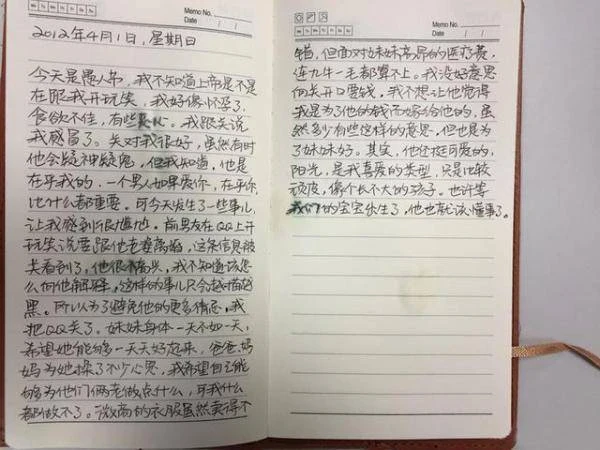 Memo No.
Date / /
2012年4月1日，星期日
今天是愚人节，我不知道上帝是不是
在跟我开玩笑，我好像怀孕了，
食欲不佳，有些恶心。我跟关说
我感冒了。关对我很好，虽然有时
他会疑神疑鬼，但我知道，他是
在乎我的，一个男人如果爱你，在乎你
比什么都重要。可今天发生了一些事儿，
让我感到很尴尬。前男友在QQ上开
玩笑说要跟他老婆离婚，这条信息被
关看到了，他很不高兴，我不知道该怎
么向他解释，这样的事儿只会越描越
黑。所以为了避免他的更多猜忌，我
把QQ关了。妹妹身体一天不如一天，
希望她能够一天天好起来，爸爸、妈
妈为她操了不少心思，我希望自己能
够为他们俩老做点什么，可我什么
都做不了。微商的衣服虽然卖得不
Memo No.
Date / /
错，但面对妹妹高昂的医疗费，
连九牛一毛都算不上。我没好意思
向关开口要钱，我不想让他觉得
我是为了他的钱而嫁给他的，虽
然多少有些这样的意思，但也是为
了妹妹好。其实，他还挺可爱的，
阳光，是我喜爱的类型，只是比较
顽皮，像个长不大的孩子。也许等
我们的宝宝出生了，他也就该懂事了。